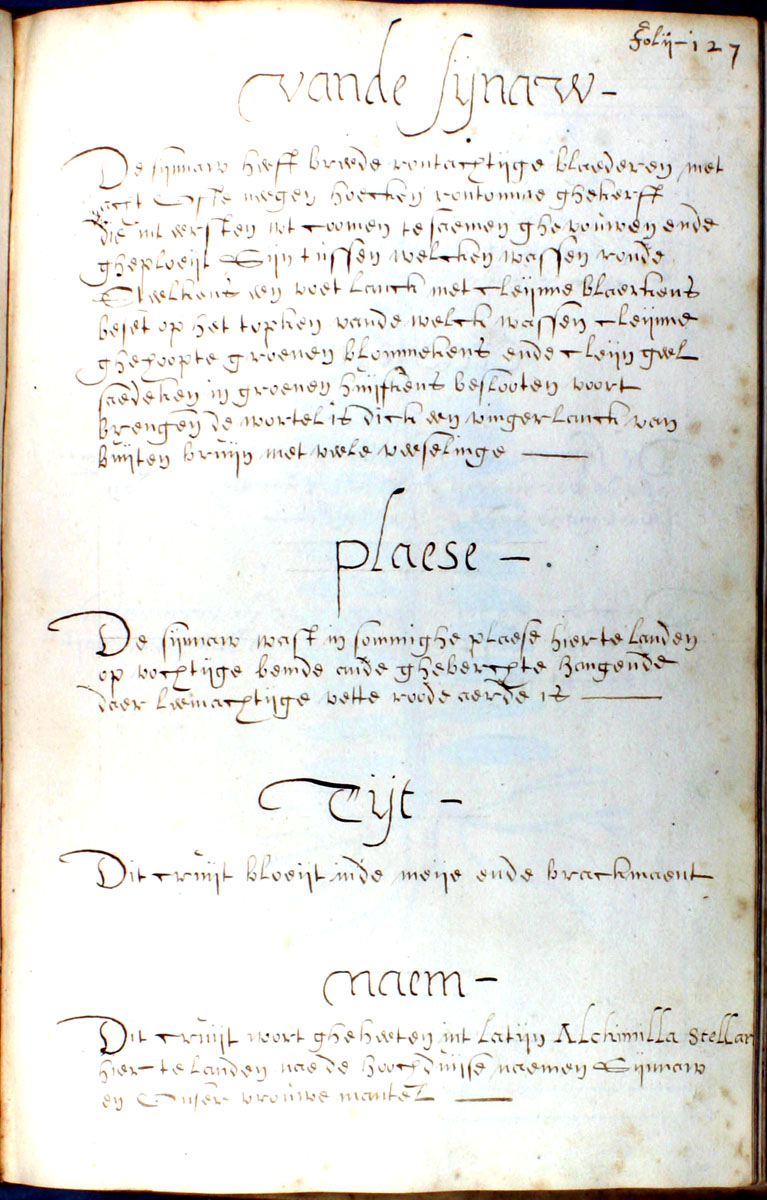 Folij-127
vande Sijnaw-
De sijnnaw heeft breede rontachtijge blaederen met
acht Ofte neegen hoecken rontomme ghekerft
die int eersten uut coomen te saemen ghevouwen ende
gheploeijt Sijn tussen welcken wassen ronde
Steelkens een voet lanck met cleijnne blaerkens
beset op het topken vande welck wassen cleijnne
ghehoopte groenen blommekens ende cleijn geel
saedeken in groenen huijskens beslooten voort
brengen de wortel is dick een vinger lanck van
buijten bruijn met veele veeselinge —
plaese -.
De sijnnaw wast in sommighe plaese hier te landen
op vochtijge bemde ende gheberchte hangende
daer leemachtijge vette roode aerde is —
Tijt -
Dit cruijt bloeijt inde meije ende brackmaent
naem -
Dit cruijt wort gheheeten int latijn Alchimilla Stellar
hier te landen nae de hoochduijse naemen Sijnnaw
en Onser vrouwe mantel —